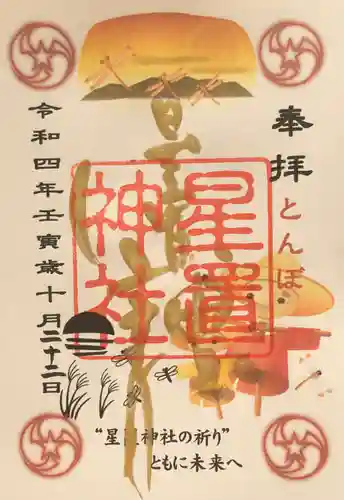 奉拝
とんぼ
星置
神社
令和四年壬寅歳十月二十二日
"星置神社の祈り"
ともに未来へ